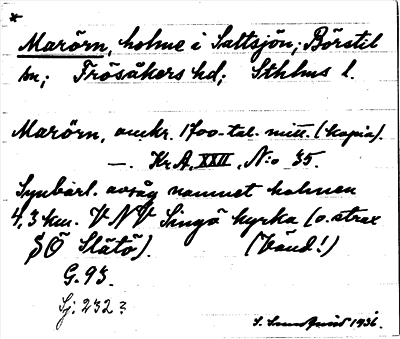 *
Marörn, holme i Saltsjön; Börstil
sn; Frösåkers hd; Sthlms l.
Marörn, omkr. 1700-tal. mitt. (kopia).
—. Kr.A. XXII, N:o 35.
Synbarl. avsåg namnet holmen
4,3 km. VNV Singö kyrka (o. strax
SÖ Slätö). (Vänd!)
G. 93.
Sj: 232 ?
1936.